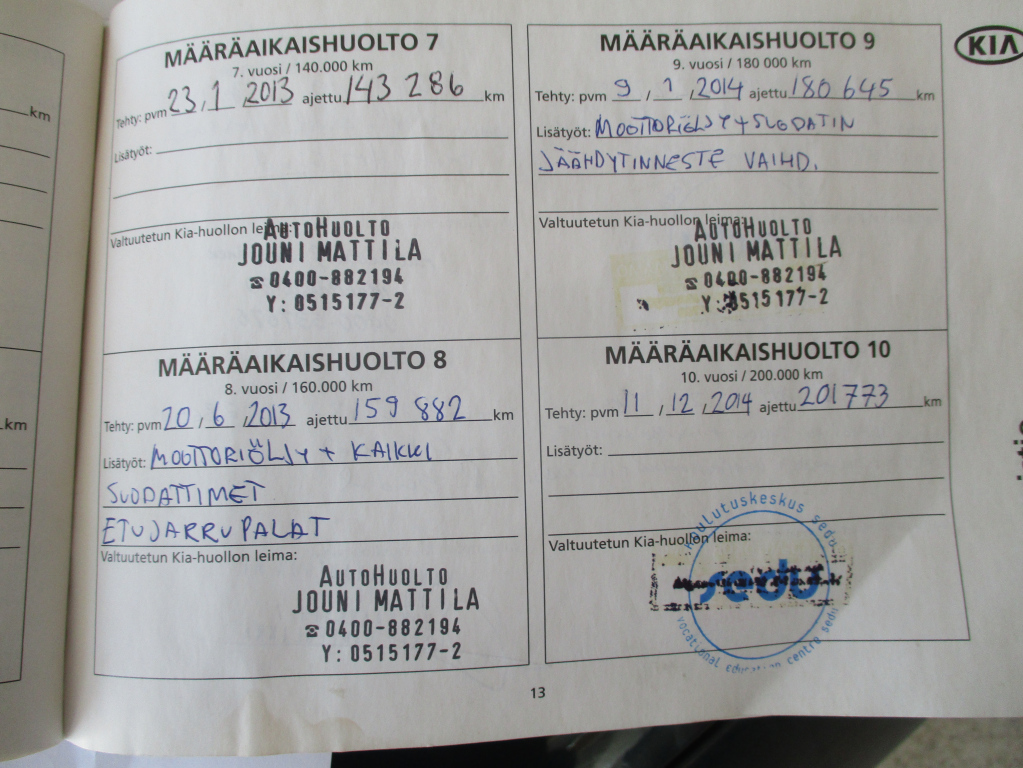 km
km
MÄÄRÄAIKAISHUOLTO 7
7. vuosi / 140.000 km
Tehty: pvm 23,1,2013 ajettu 143 286 km
Lisätyöt:
Valtuutetun Kia-huollon leima:
AUTOHUOLTO
JOUNI MATTILA
☎0400-882194
Y: 0515177-2
MÄÄRÄAIKAISHUOLTO 8
8. vuosi / 160.000 km
Tehty: pvm 20,6,2013 ajettu 159 882 km
Lisätyöt: MOOTTORIÖLJY + KAIKKI
SUODATTIMET
ETUJARRUPALAT
Valtuutetun Kia-huollon leima:
AUTOHUOLTO
JOUNI MATTILA
☎0400-882194
Y: 0515177-2
KIA
MÄÄRÄAIKAISHUOLTO 9
9. vuosi / 180 000 km
Tehty: pvm 9,1,2014 ajettu 180 645 km
Lisätyöt: MOOTTORIÖLJY + SUODATIN
JÄÄHDYTINNESTE VAIHD.
Valtuutetun Kia-huollon leima:
AUTOHUOLTO
JOUNI MATTILA
☎0400-882194
Y: 0515177-2
MÄÄRÄAIKAISHUOLTO 10
10. vuosi / 200.000 km
Tehty: pvm 11,12,2014 ajettu 201773 km
Lisätyöt:
Valtuutetun Kia-huollon leima:
koulutuskeskus sedu
sedu
vocational education centre sedu
13